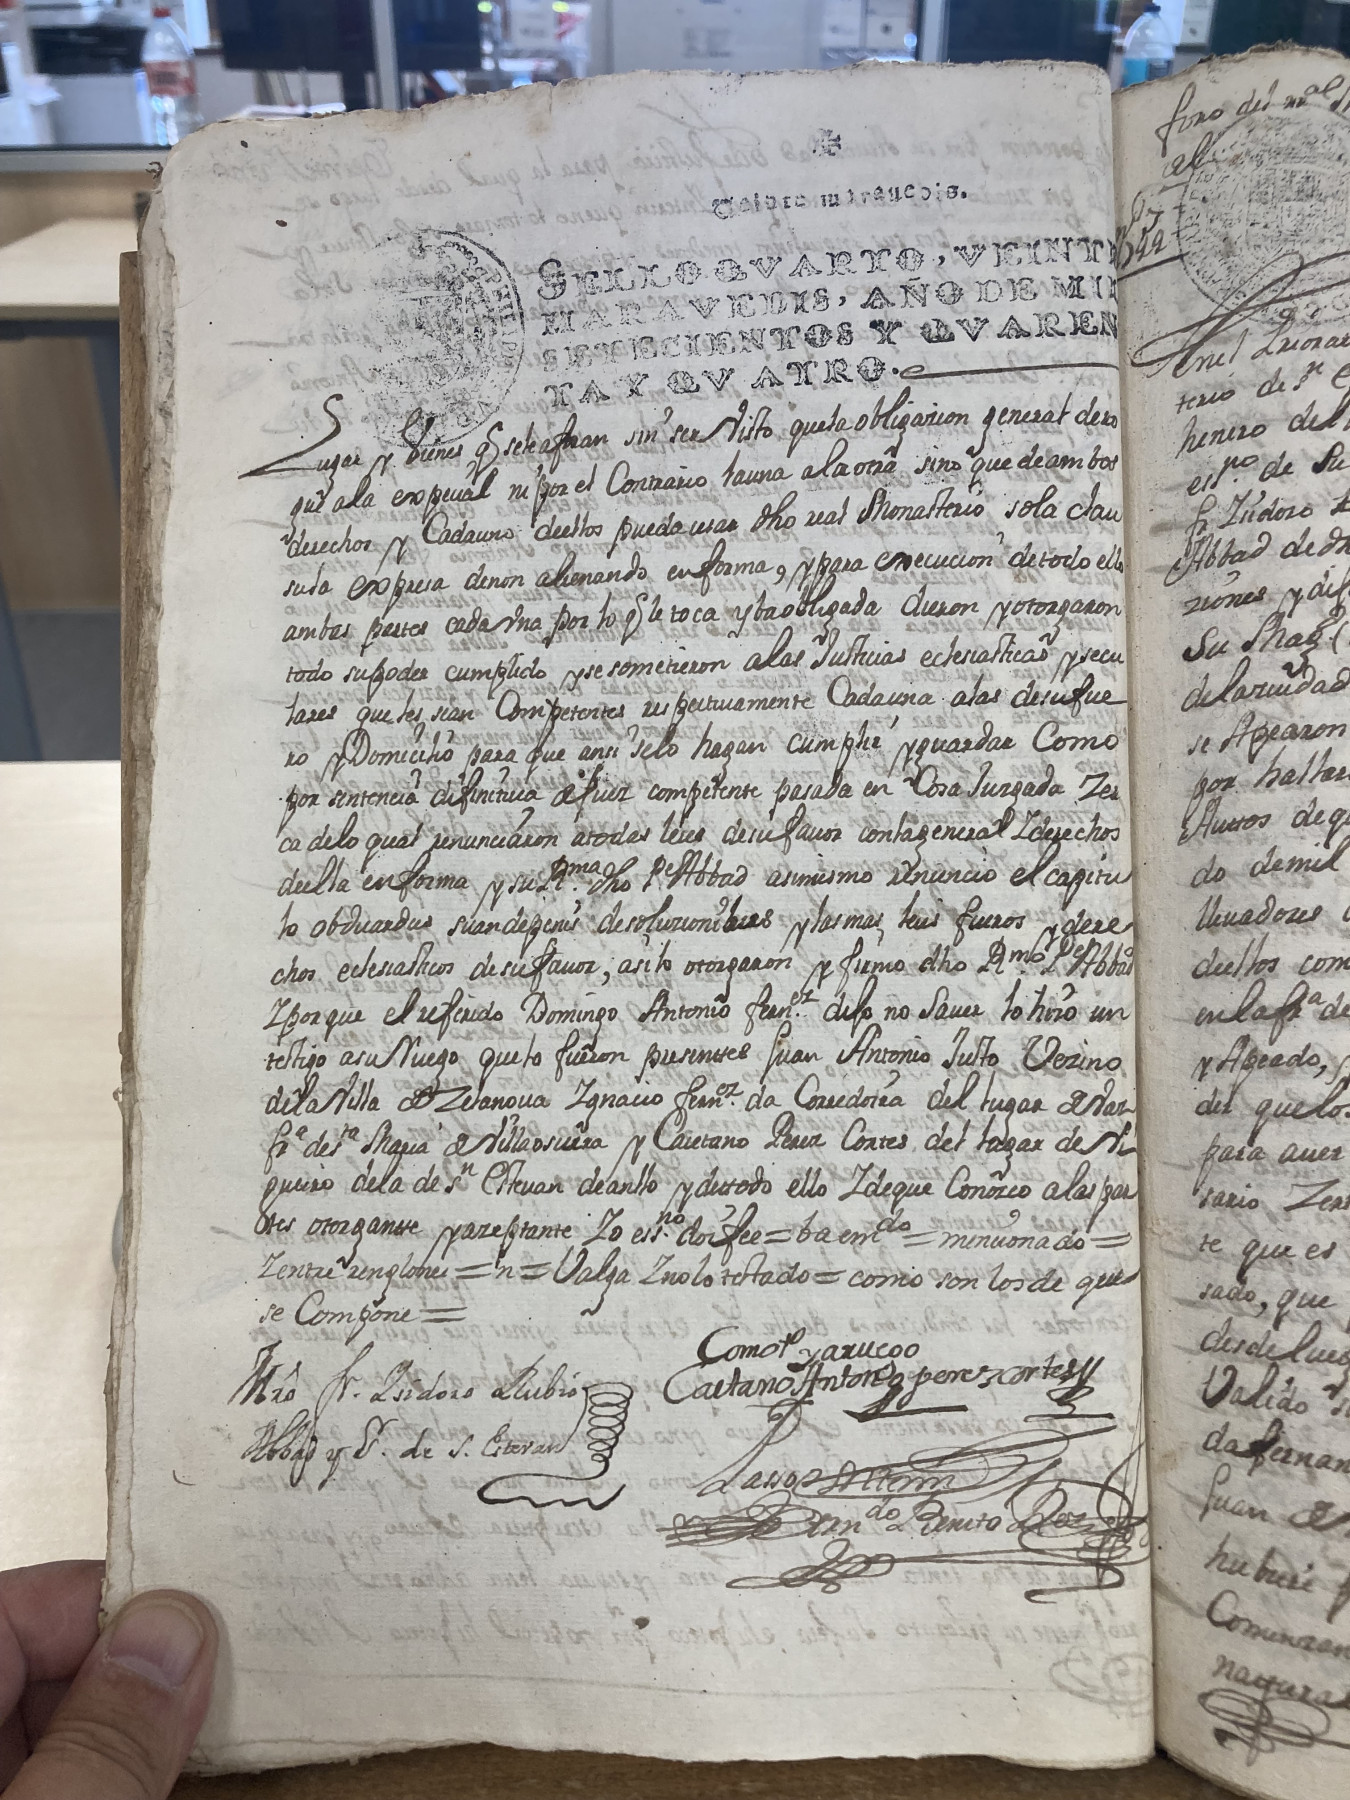 Veinte maravedis.
SELLO QVARTO, VEINTE
MARAVEDIS, AÑO DE MIL
SETECIENTOS Y QVAREN
TA Y QVATRO.
Lugar y vienes q̃ seteafnan sin ser Visto quela obligazion general dero
gue ala expecial ni por el Contrario launa ala otra sino que de ambos
derechos y Cadauno deellos pueda usar dho real Monasterio sola clau
sula expresa denon alienando en forma, y para execucion de todo ello
ambas partes cada vna por lo q̃ le toca y ba obligada dieron y otorgaron
todo su poder cumplido y se sometieron a las Justicias eclesiasticas y secu
lares que les sean Competentes respectiuamente Cadauna a las de su fue
ro y Domicilio para que ansi selo hagan cumplir y guardar Como
por sentencia difinitiua de Juez competente pasada en Cosa Juzgada Zer
ca delo qual renunciaron atodas leies desu fauor conla general Zderechos
deella en forma y su R.ma dho Pe Abbad asimismo renuncio el capitu
lo obduardus suandepenis desoluzionibus y las mas leies fueros y dere
chos eclesiasticos desu fauor, asi lo otorgaron y firmo dho R.mo Pe Abbad
Zporque el referido Domingo Antonio fern.ez dijo no Sauer lo hizo un
testigo asu Ruego que lo fueron presentes Juan Antonio Justo Vezino
dela Villa de Zelanoua Ygnacio fern.ez da Corredoira del lugar de
fr.a de S.ta Maria de Villaouiera y Caietano Perez Cortes del lugar de Ni
gueiro dela de S.n Esteuan deanllo y detodo ello Zdeque Conozco a las par
tes otorgante yazeptante Yo ess.no doi fee = ba em.do = mencionado =
Zentre renglones = n = Valga Znolo testado = como son los de que
se Compone =
Mrô fr. Isidoro Rubio
Abbad y S.r de S. Esteuan
Como t.o y a ruego
Caetano Antonio perez cortes
Passo Ante mi
Bern.do Benito
foro del
al
Enel Priorato
terio de S.n
henero del
ess.no de Su
fr Isidoro
Abbad de dh
ziones y dif
Su Mag.
dela ziudad
se Apearon
por hallar
Autos de q
do de mil
lleuadores
deellos com
en la fr.a de
y Apeado,
der que los
para auer
sario Zer
te que es
sado, que
desde lueg
Valido
da fernan
Juan de
hubiere
Comenzan
natural